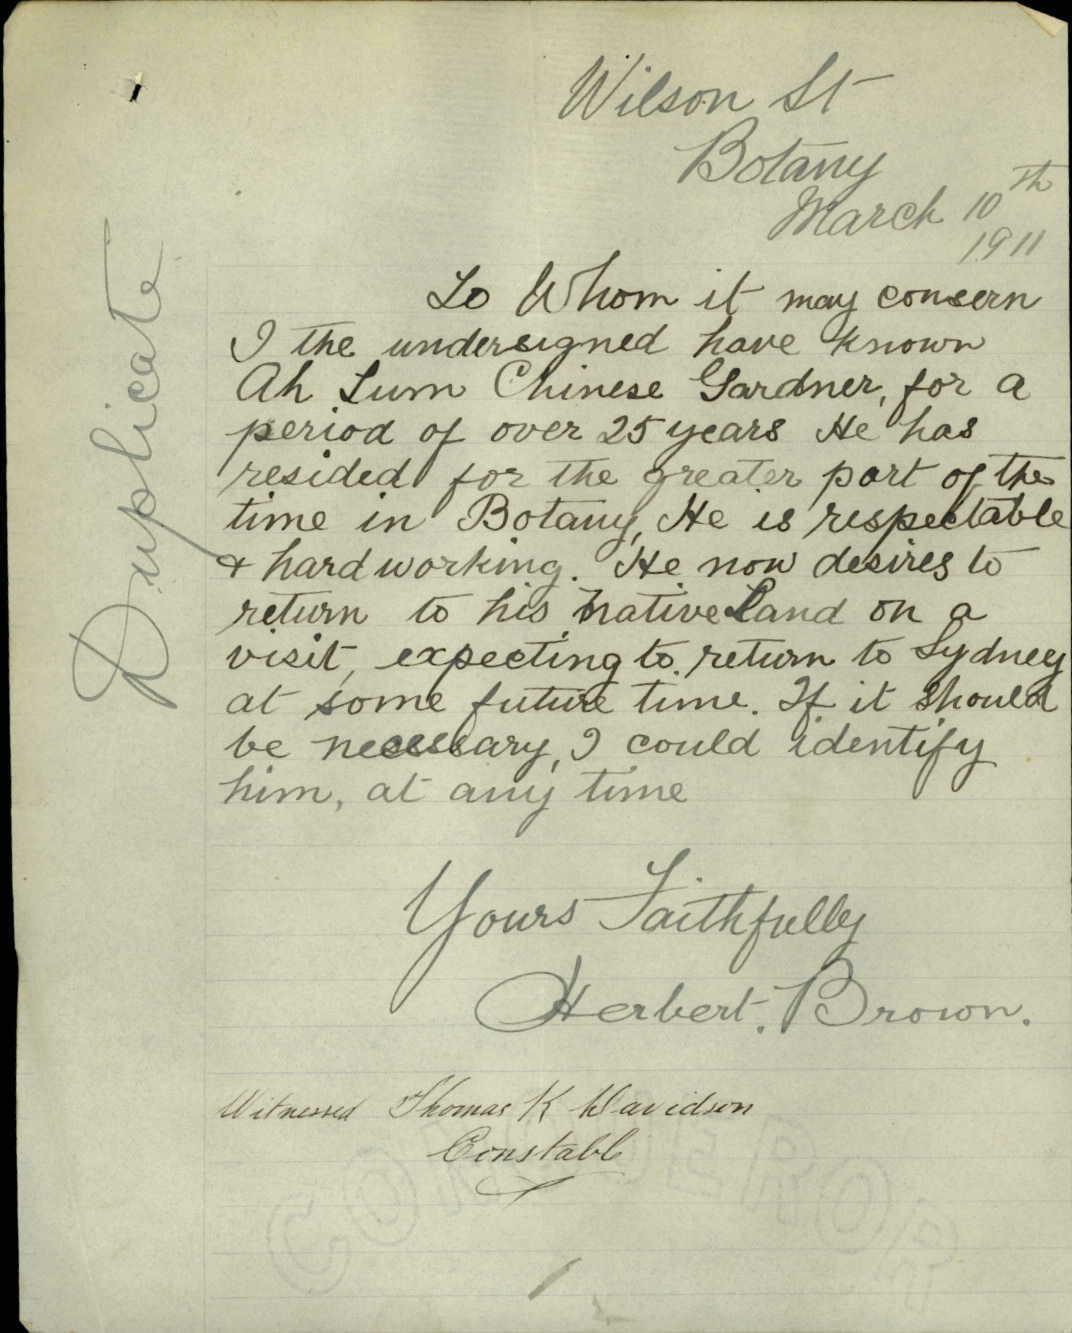 Wilson St
Botany
March 10th
1911
Duplicate
To Whom it may concern
I the undersigned have known
Ah Lum Chinese Gardner, for a
period of over 25 years He has
resided for the greater part of the
time in Botany, He is respectable
& hard working. He now desires to
return to his native Land on a
visit, expecting to return to Sydney
at some future time. If it should
be necessary, I could identify
him, at any time
Yours Faithfully
Herbert. Brown.
Witnessed Thomas K Davidson
Constable
CONQUEROR